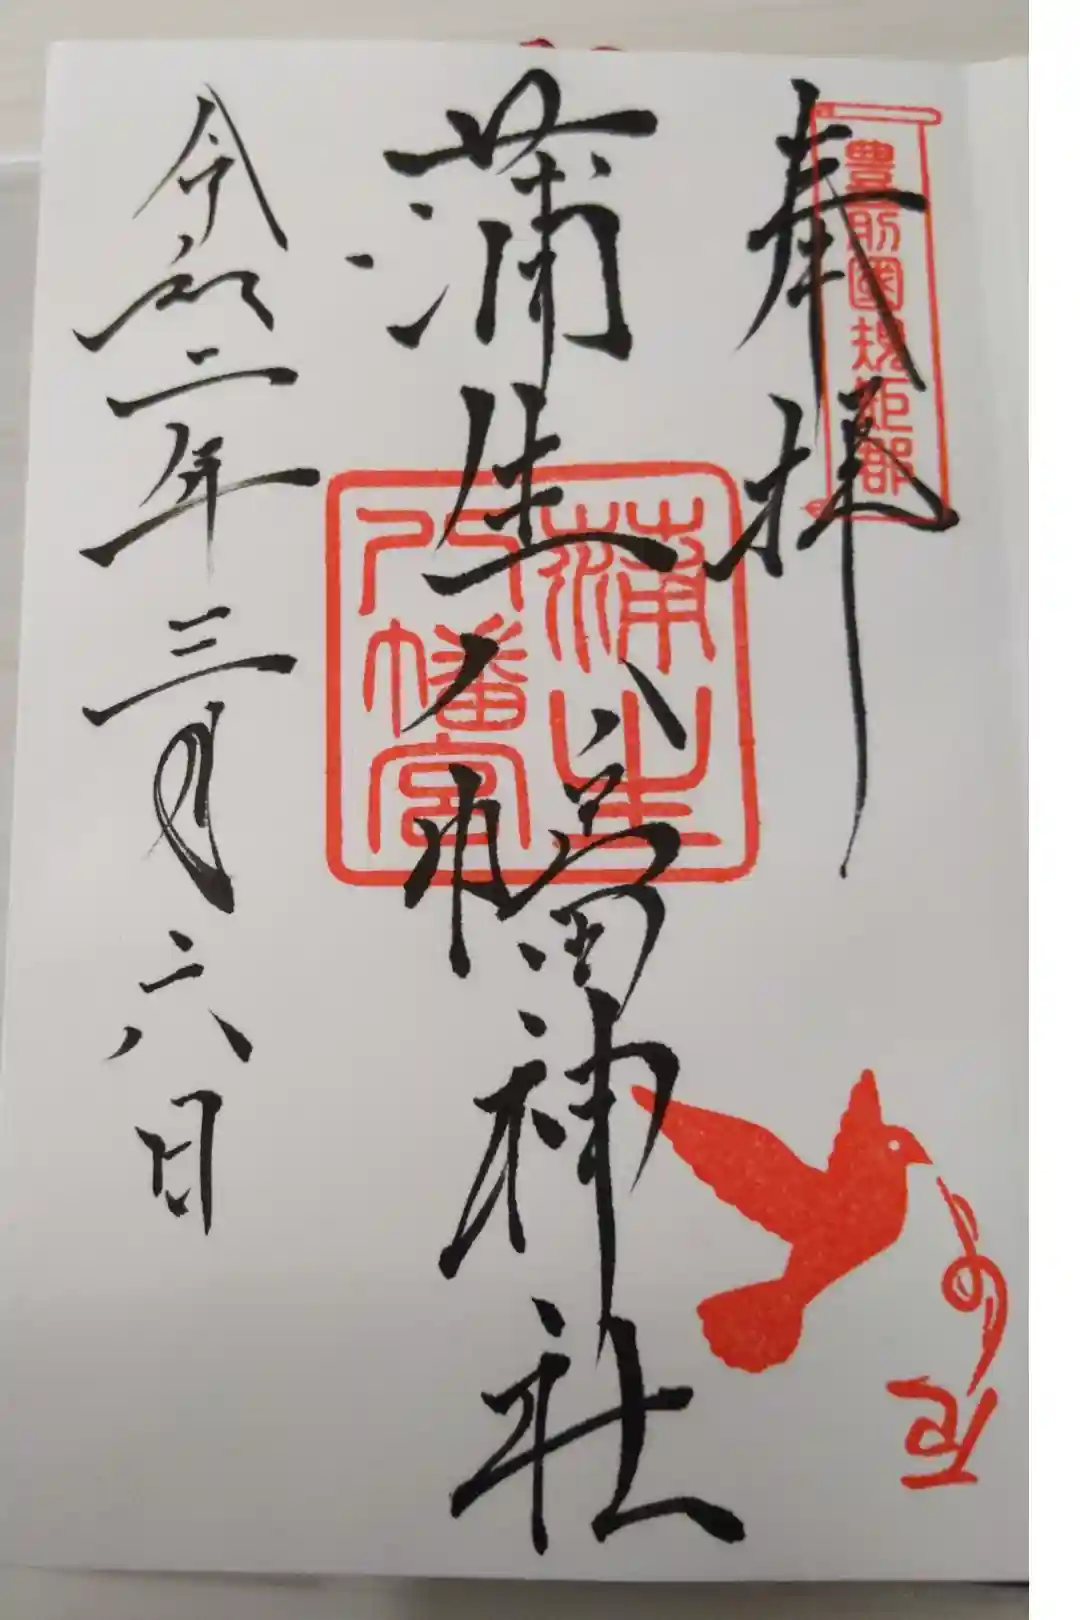 奉拝
豊前國規矩郡
蒲生八幡神社
蒲生
八幡宮
令和二年三月六日